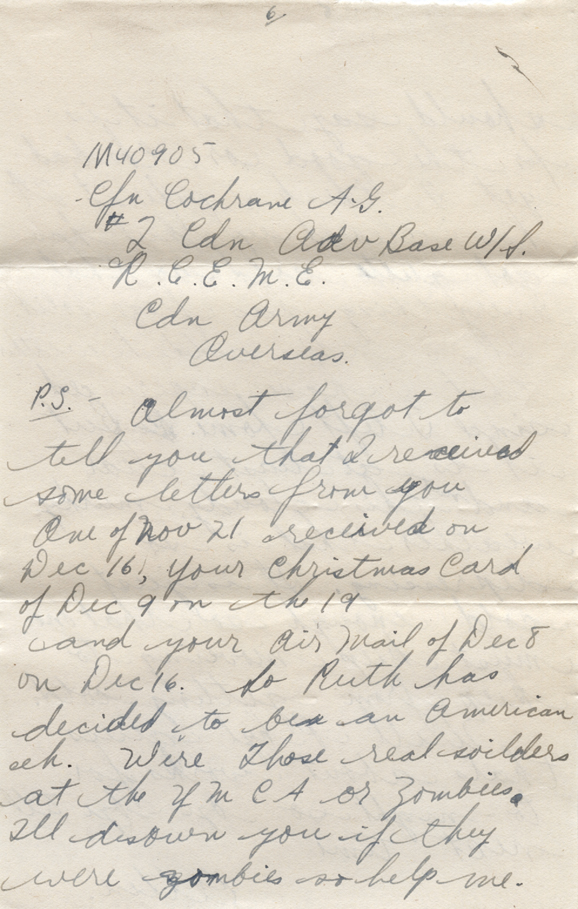 6
M40905
Cfn Cochrane A.G.
#2 Cdn Adv Base W/S.
R.C.E.M.E.
Cdn Army
Overseas.
P.S. - Almost forgot to
tell you that I received
some letters from you
One of Nov 21 received on
Dec 16, your Christmas Card
of Dec 9 on the 19
and your Air Mail of Dec 8
on Dec 16. So Ruth has
decided to be an American
eh. Were Those real soilders
at the YMCA or Zombies.
I'll disown you if they
were zombies so help me.